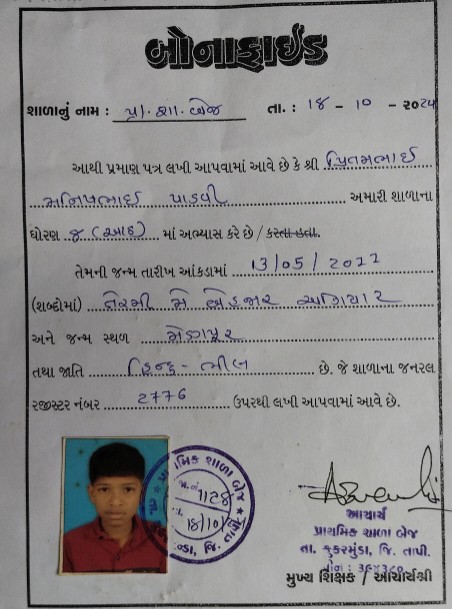 બોનાફાઈડ
શાળાનું નામ : પ્રા. શા. બેજ તા. : 18 - 10 - ૨૦24
આથી પ્રમાણ પત્ર લખી આપવામાં આવે છે કે શ્રી પ્રિતમભાઈ
મનિષભાઈ પાડવી અમારી શાળાના
ધોરણ ૮ (આઠ) માં અભ્યાસ કરે છે / કરતા હતા.
તેમની જન્મ તારીખ આંકડામાં 13/05/2011
(શબ્દોમાં) તેરમી મે બેહજાર અગિયાર
અને જન્મ સ્થળ
તથા જાતિ હિન્દુ - ભીલ છે. જે શાળાના જનરલ
રજીસ્ટર નંબર 2776 ઉપરથી લખી આપવામાં આવે છે.
પ્રાથમિક શાળા બેજ
જા.નં 1128
તા. 18/10/
જિ. તાપી
આચાર્ય
પ્રાથમિક શાળા બેજ
તા. કુકરમુંડા, જિ. તાપી.
પીન : ૩૯૪૩૮૦
મુખ્ય શિક્ષક / આચાર્યશ્રી